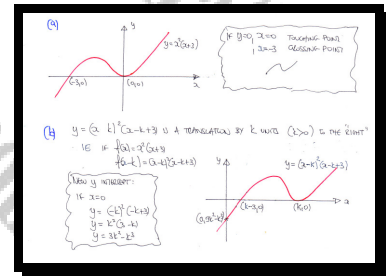 (a)
y
y=x²(x+3)
(-3,0)
(0,0)
x
IF y=0, x=0 TOUCHING POINT
x=-3 CROSSING POINT
(b) y=(x-k)²(x-k+3) IS A TRANSLATION BY k UNITS (k>0) TO THE "RIGHT"
IE IF f(x)=x²(x+3)
f(x-k)=(x-k)²(x-k+3)
y INTERCEPT:
IF x=0
y=(-k)²(-k+3)
y=k²(3-k)
y=3k²-k³
y
y=(x-k)²(x-k+3)
(0,3k²-k³)
(k-3,0)
(k,0)
x